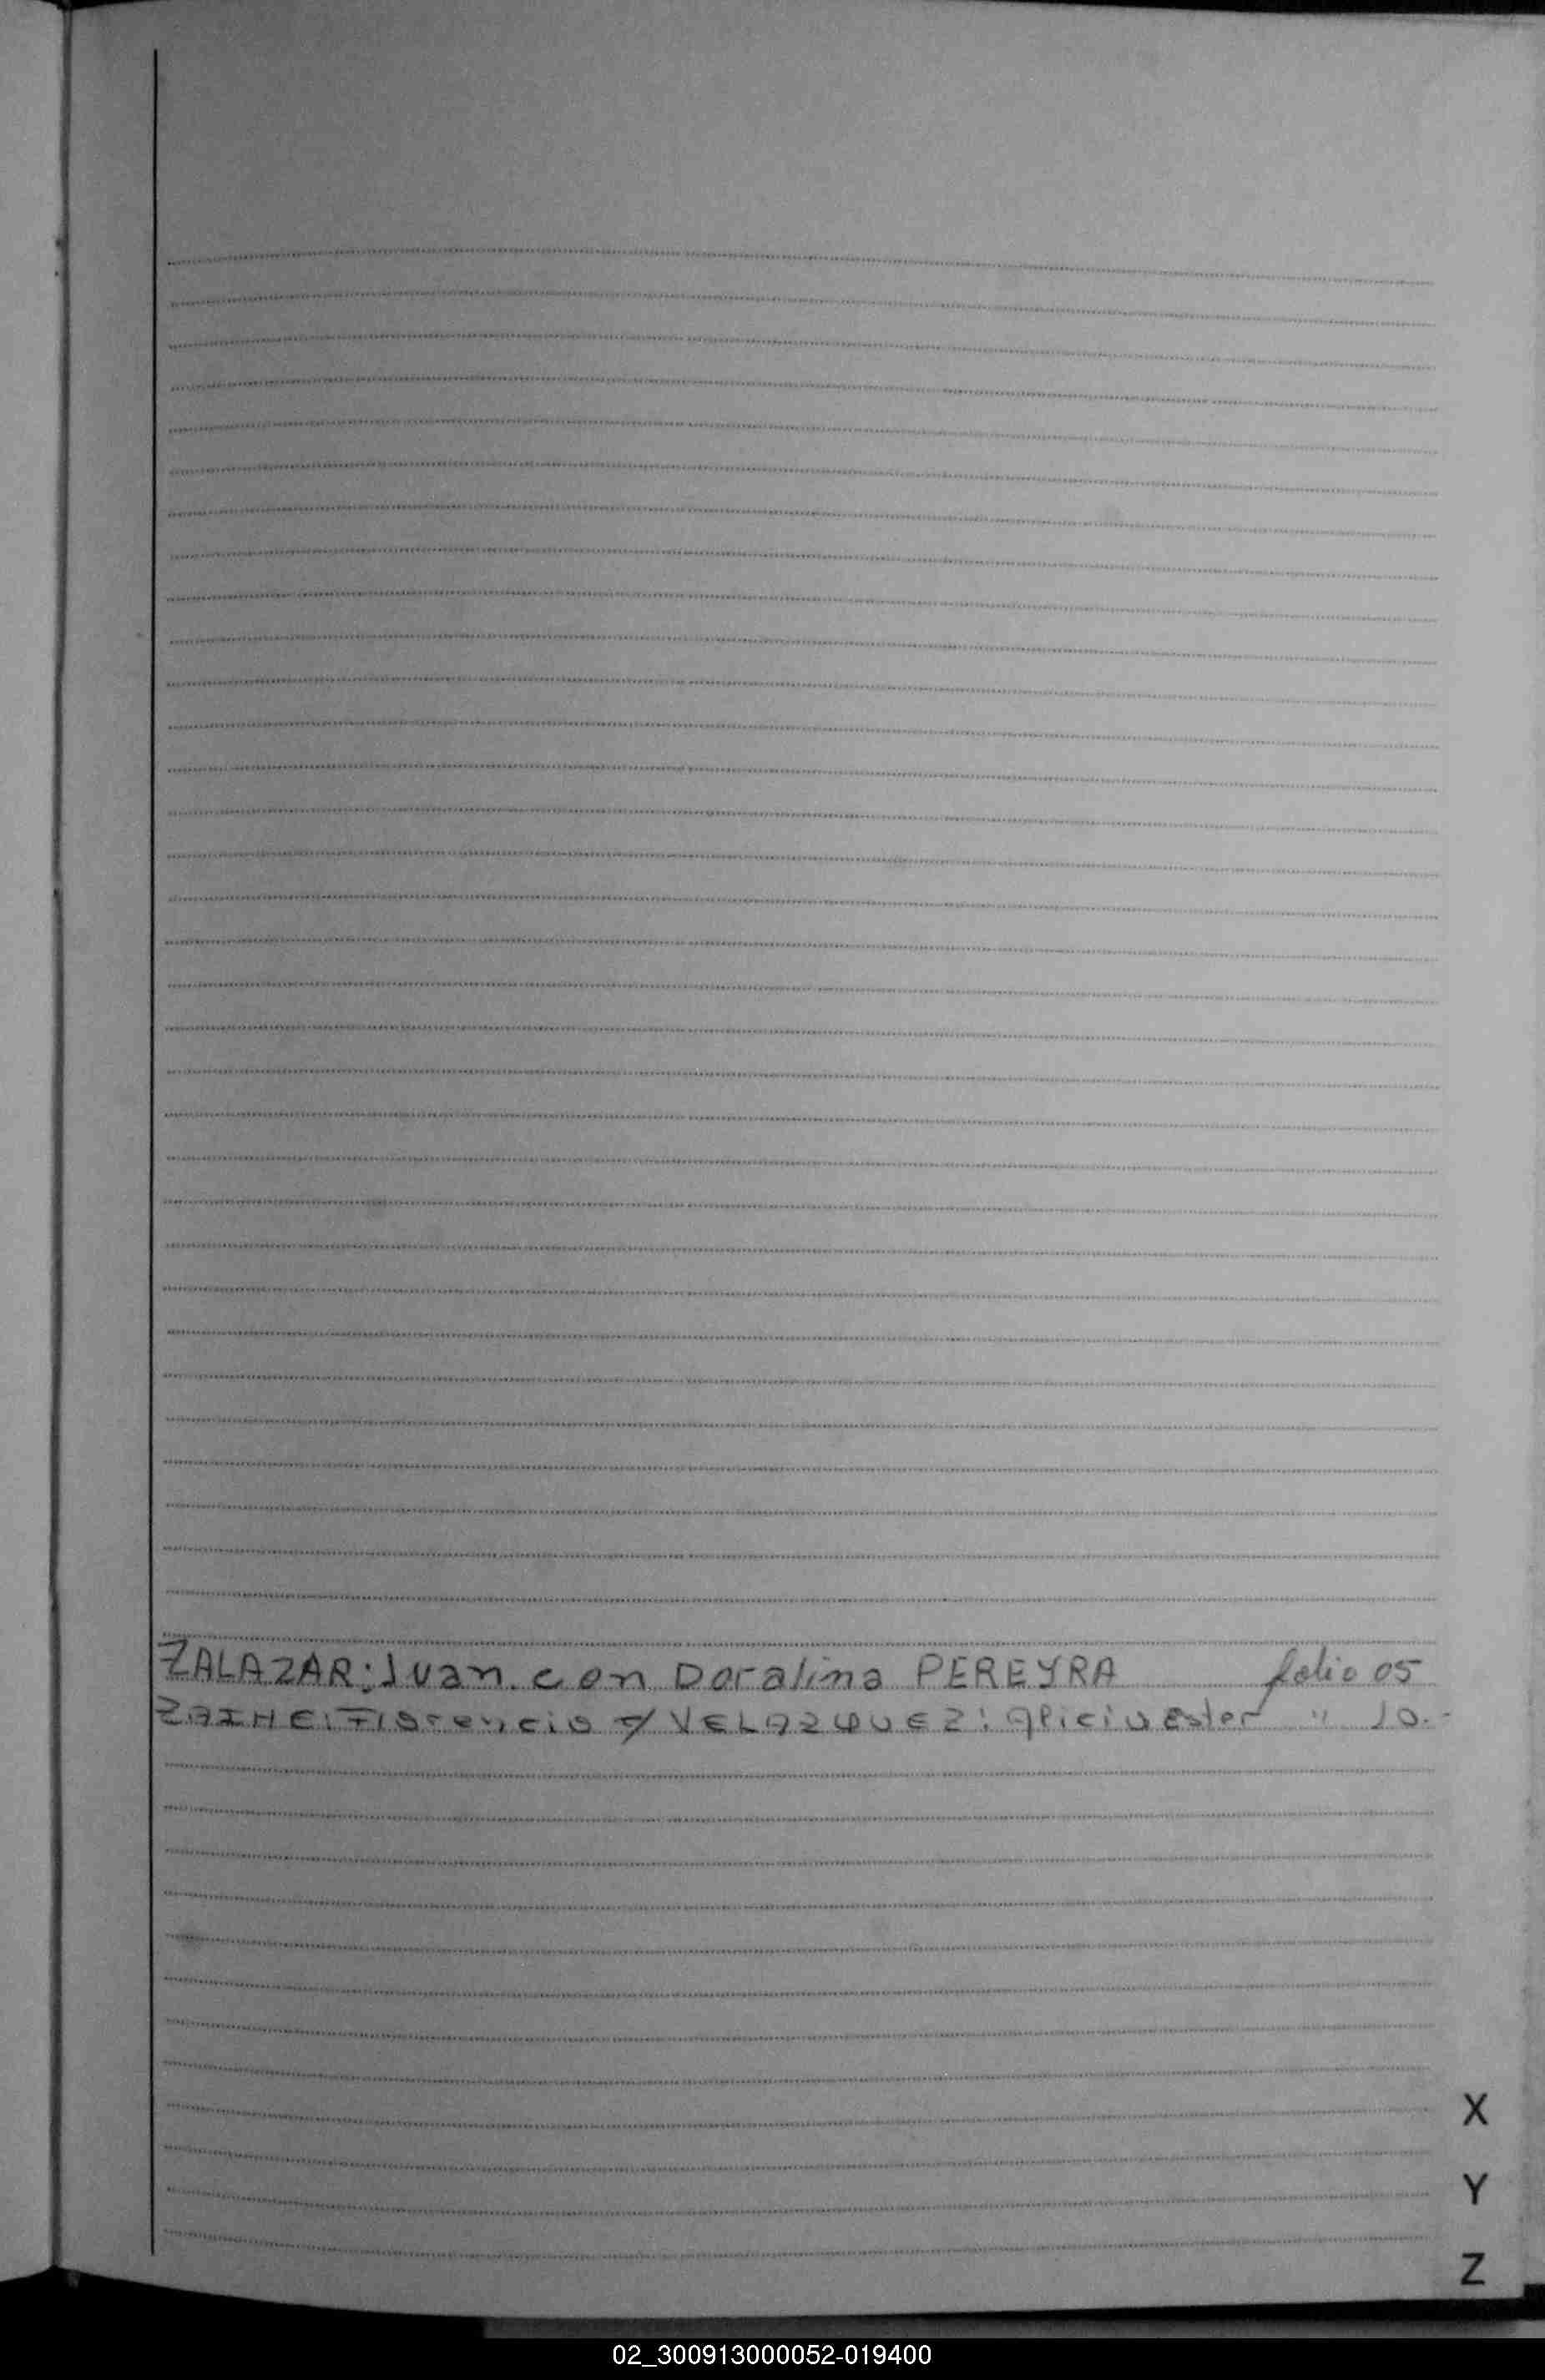 ZALAZAR: Juan. con Doralina PEREYRA folio 05
ZAIHE: Florencio c/ VELAZQUEZ: Alicia Ester " 10.-
X
Y
Z
02_300913000052-019400